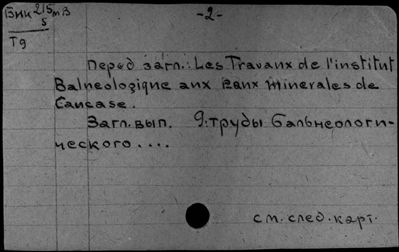 Вик 215 мВ
5
Т9
-2-
перед загл.: Les Travaux de l'institut
Balneologique aux Eaux minerales de
Caucase.
Загл. вып. 9: труды бальнеологи-
ческого....
см. след. карт.